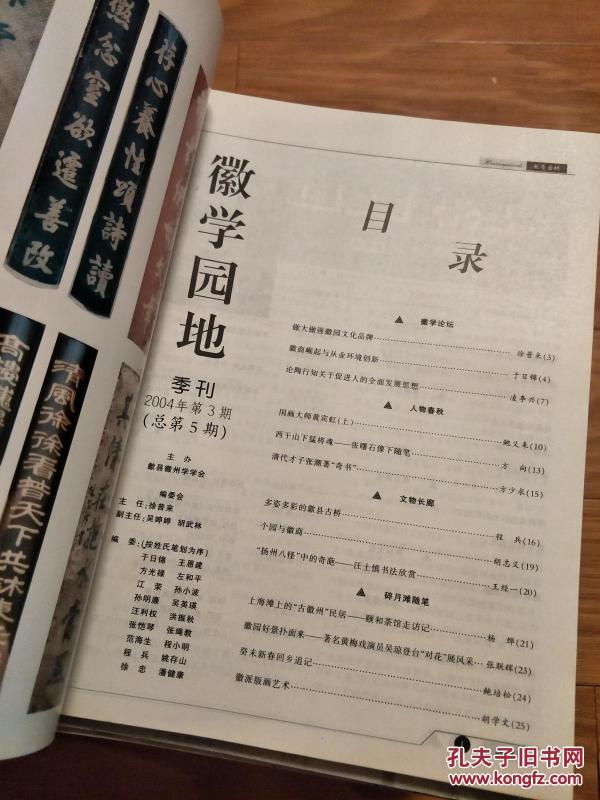 然念窒欲遷善改
存心養性頌詩讀
清風徐徐看普天下共沐
徽学园地
徽学园地
季刊
2004年第3期
(总第5期)
主办
歙县徽州学学会
编委会
主任：徐普来
副主任：吴婷婷 胡武林
编委：(按姓氏笔划为序)
于日锦 王恩建
方光禄 左和平
江荣 孙小波
孙明廉 吴英瑛
汪利权 洪振秋
张恺琴 张绳教
范海生 程小明
程兵 姚存山
徐忠 潘健康
目录
▲ 徽学论坛
做大做强徽园文化品牌……徐普来(3)
徽商崛起与从业环境创新……于日锦(4)
论陶行知关于促进人的全面发展思想……凌李兴(7)
▲ 人物春秋
国画大师黄宾虹(上)……鲍义来(10)
西干山下猛将魂——张曙石像下随笔……方向(13)
清代才子张潮著“奇书”……方少求(15)
▲ 文物长廊
多姿多彩的歙县古桥……程兵(16)
个园与徽商……胡志义(19)
“扬州八怪”中的奇葩——汪士慎书法欣赏……王经一(20)
▲ 碎月滩随笔
上海滩上的“古徽州”民居——颐和茶馆走访记……杨烨(21)
徽园好景扑面来——著名黄梅戏演员吴琼登台“对花”展风采…张联辉(23)
癸未新春回乡追记……鲍培松(24)
徽派版画艺术……胡学文(25)
1
孔夫子旧书网
www.kongfz.com